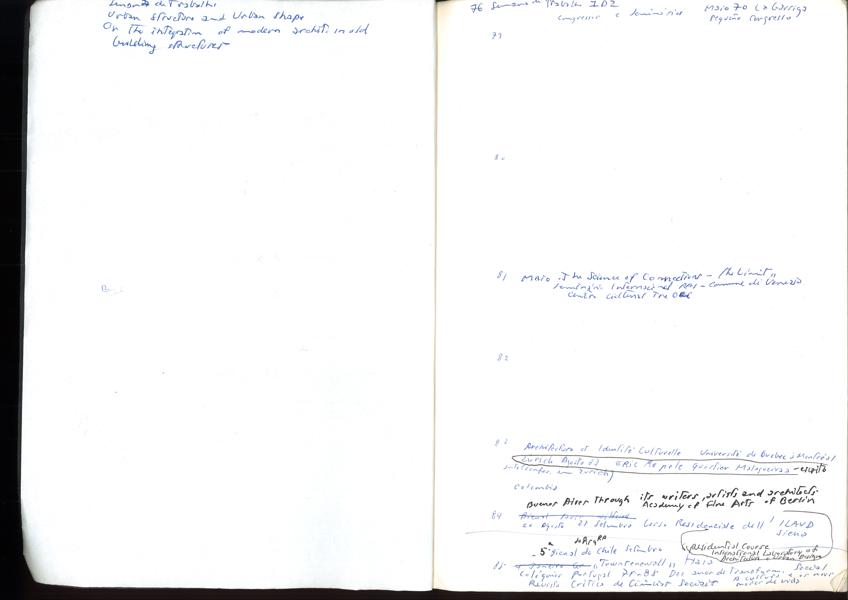 Semana de Trabalho
Urban structure and Urban shape
On the integration of modern archit. in old
building structures
76 Semana de Trabalho IDZ Maio 70 La Garriga
Congressos e Seminários Pequeno Congresso
79
80
81 Maio "The Science of Connections – the Limit"
Seminário Internacional – Comune di Venezia
Centro Cultural
82
83 Architecture et Identité Culturelle Université du Quebec à Montréal
Zurich Agosto quartier Malagueira – escrito
Zurich)
Colombia
Buenos Aires through its writers, artists and architects
Academy of Fine Arts of Berlin
84
20 Agosto 21 Setembro Corso Residenziale dell' ILAUD
Siena
Residential Course
International Laboratory of
Architecture & Urban Design
de Arqra
– 5ª Bienal do Chile Setembro
85 "Townrenewal" Haia
Colóquio Portugal 74-85 Dez anos de Transform. Social
Revista Crítica de Ciências Sociais A cultura e os novos
modos de vida